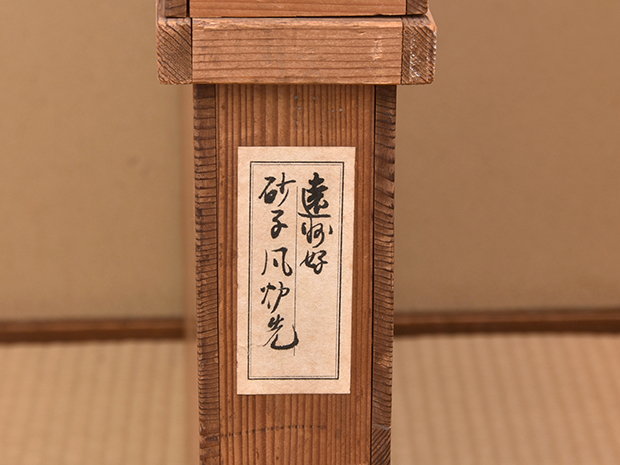 遠州好
砂子風炉先